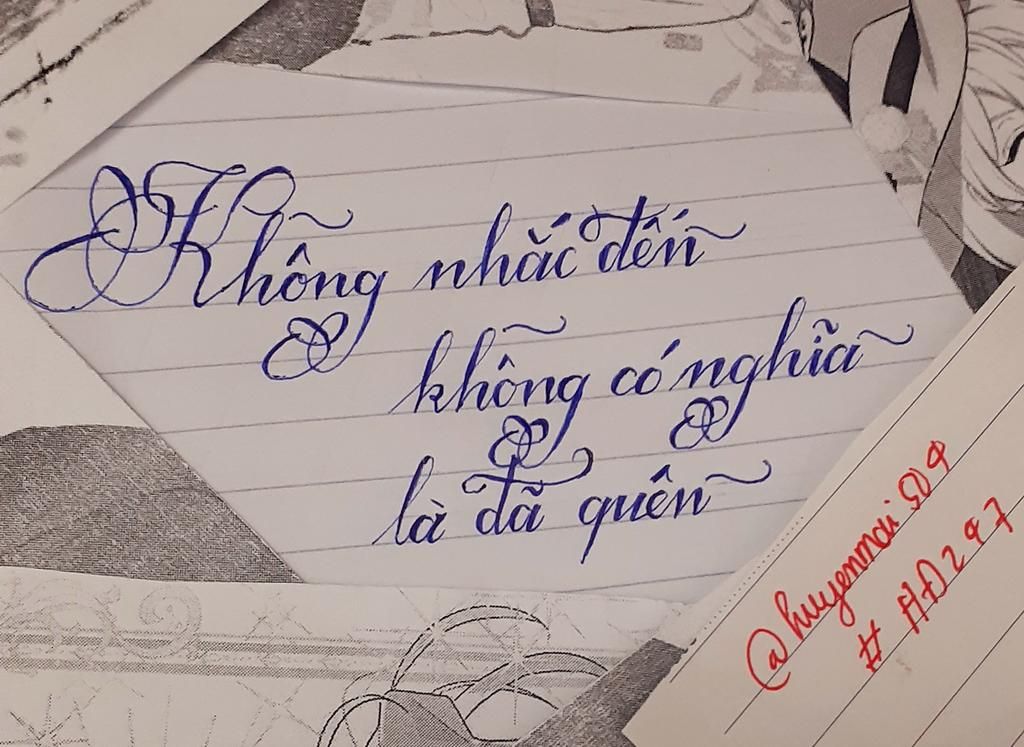 Không nhắc đến
không có nghĩa
là đã quên
@huyenmai509
#AĐ297